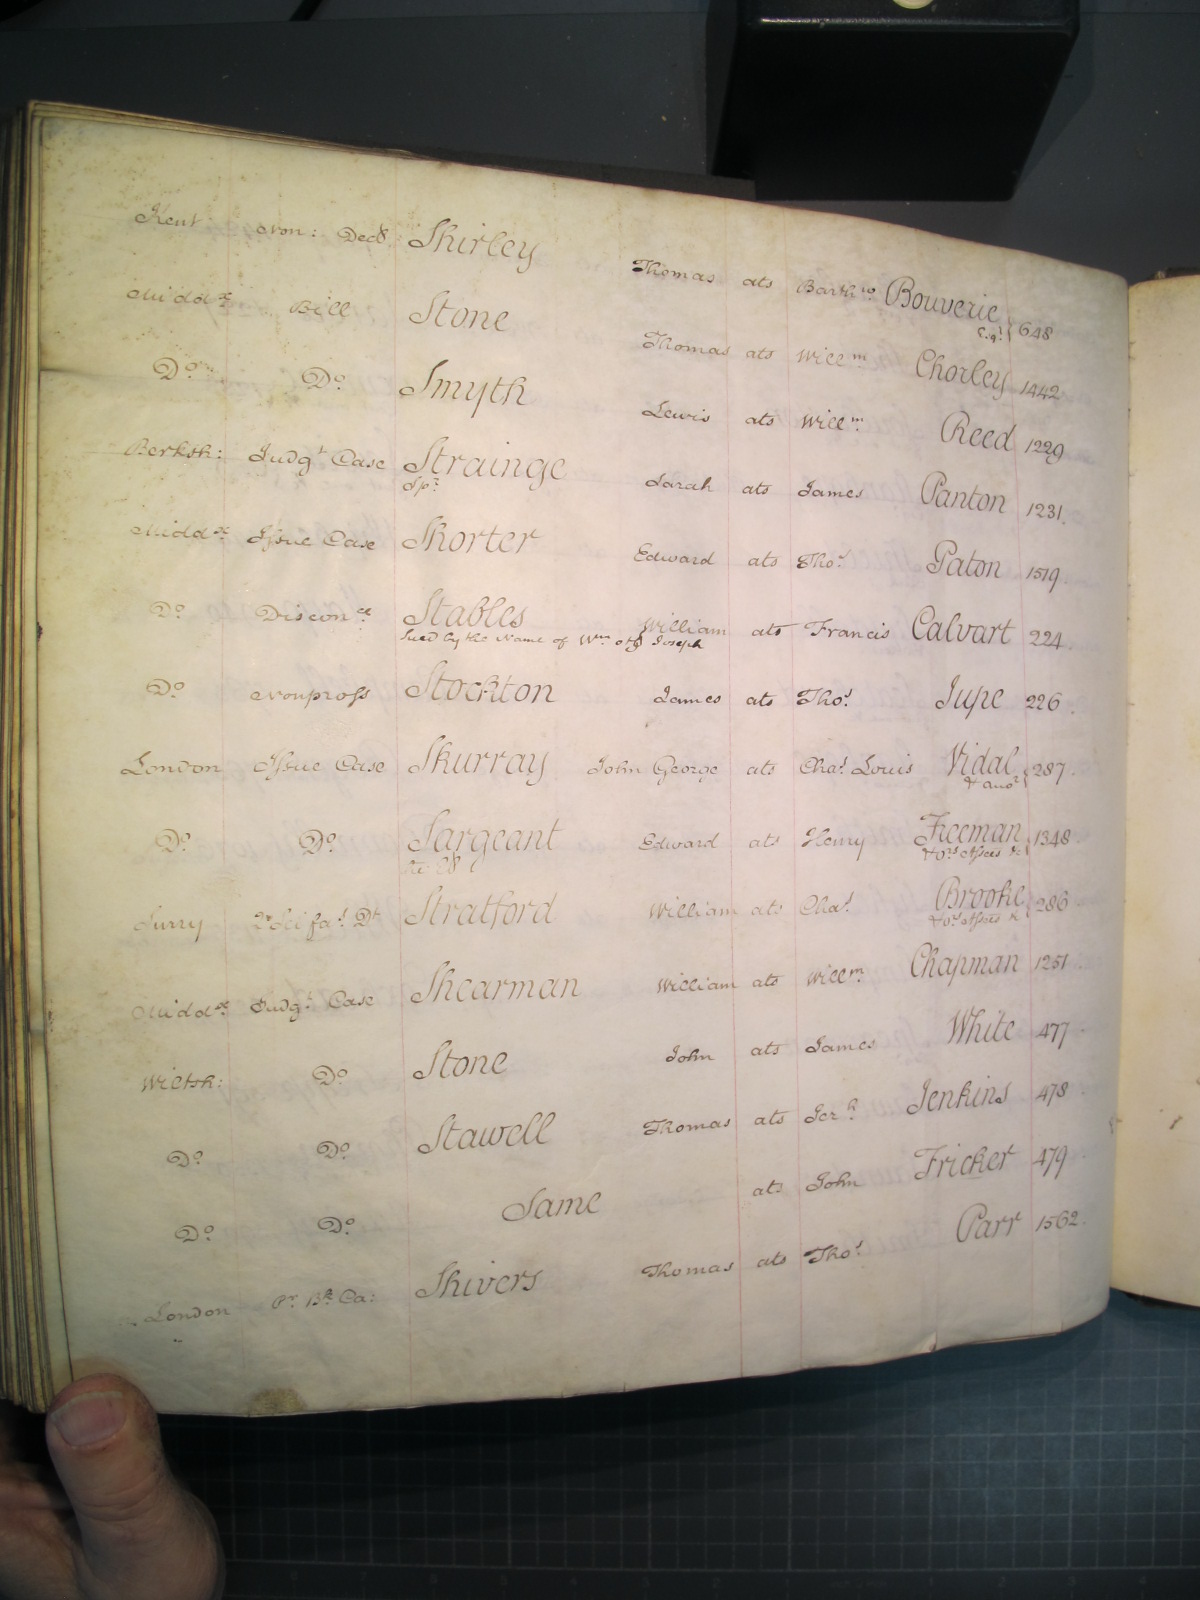 Kent Non: Decl Shirley Thomas ats Barth.w Bouverie Esq.r 648
Midd.x Bill Stone Thomas ats Will.m Chorley 1442
D.o D.o Smyth Lewis ats Will.m Reed 1229
Berksh: Judg.t Case Strainge Sarah ats James Panton 1231.
Sp.r
Midd.x Issue Case Shorter Edward ats Tho.s Paton 1519.
D.o Discon.ce Stables William ats Francis Calvart 224.
Sued by the Name of W.m ors Joseph
D.o Nonpross Stockton James ats Tho.s Jupe 226.
London Issue Case Skurray John George ats Cha.s Louis Vidal 287.
& ano.r
D.o D.o Sargeant Edward ats Henry Freeman 1348.
& o.rs Assees &c
Surry 2.d Sci fa.s D.t Stratford William ats Cha.s Brooke 286
& o.rs Assees &c
Midd.x Judg.t Case Shearman William ats Will.m Chapman 1251.
Wiltsh: D.o Stone John ats James White 477.
D.o D.o Stawell Thomas ats Jer.h Jenkins 478
D.o D.o Same ats John Fricker 479
London P.r B.k Ca: Shivers Thomas ats Tho.s Parr 1562.